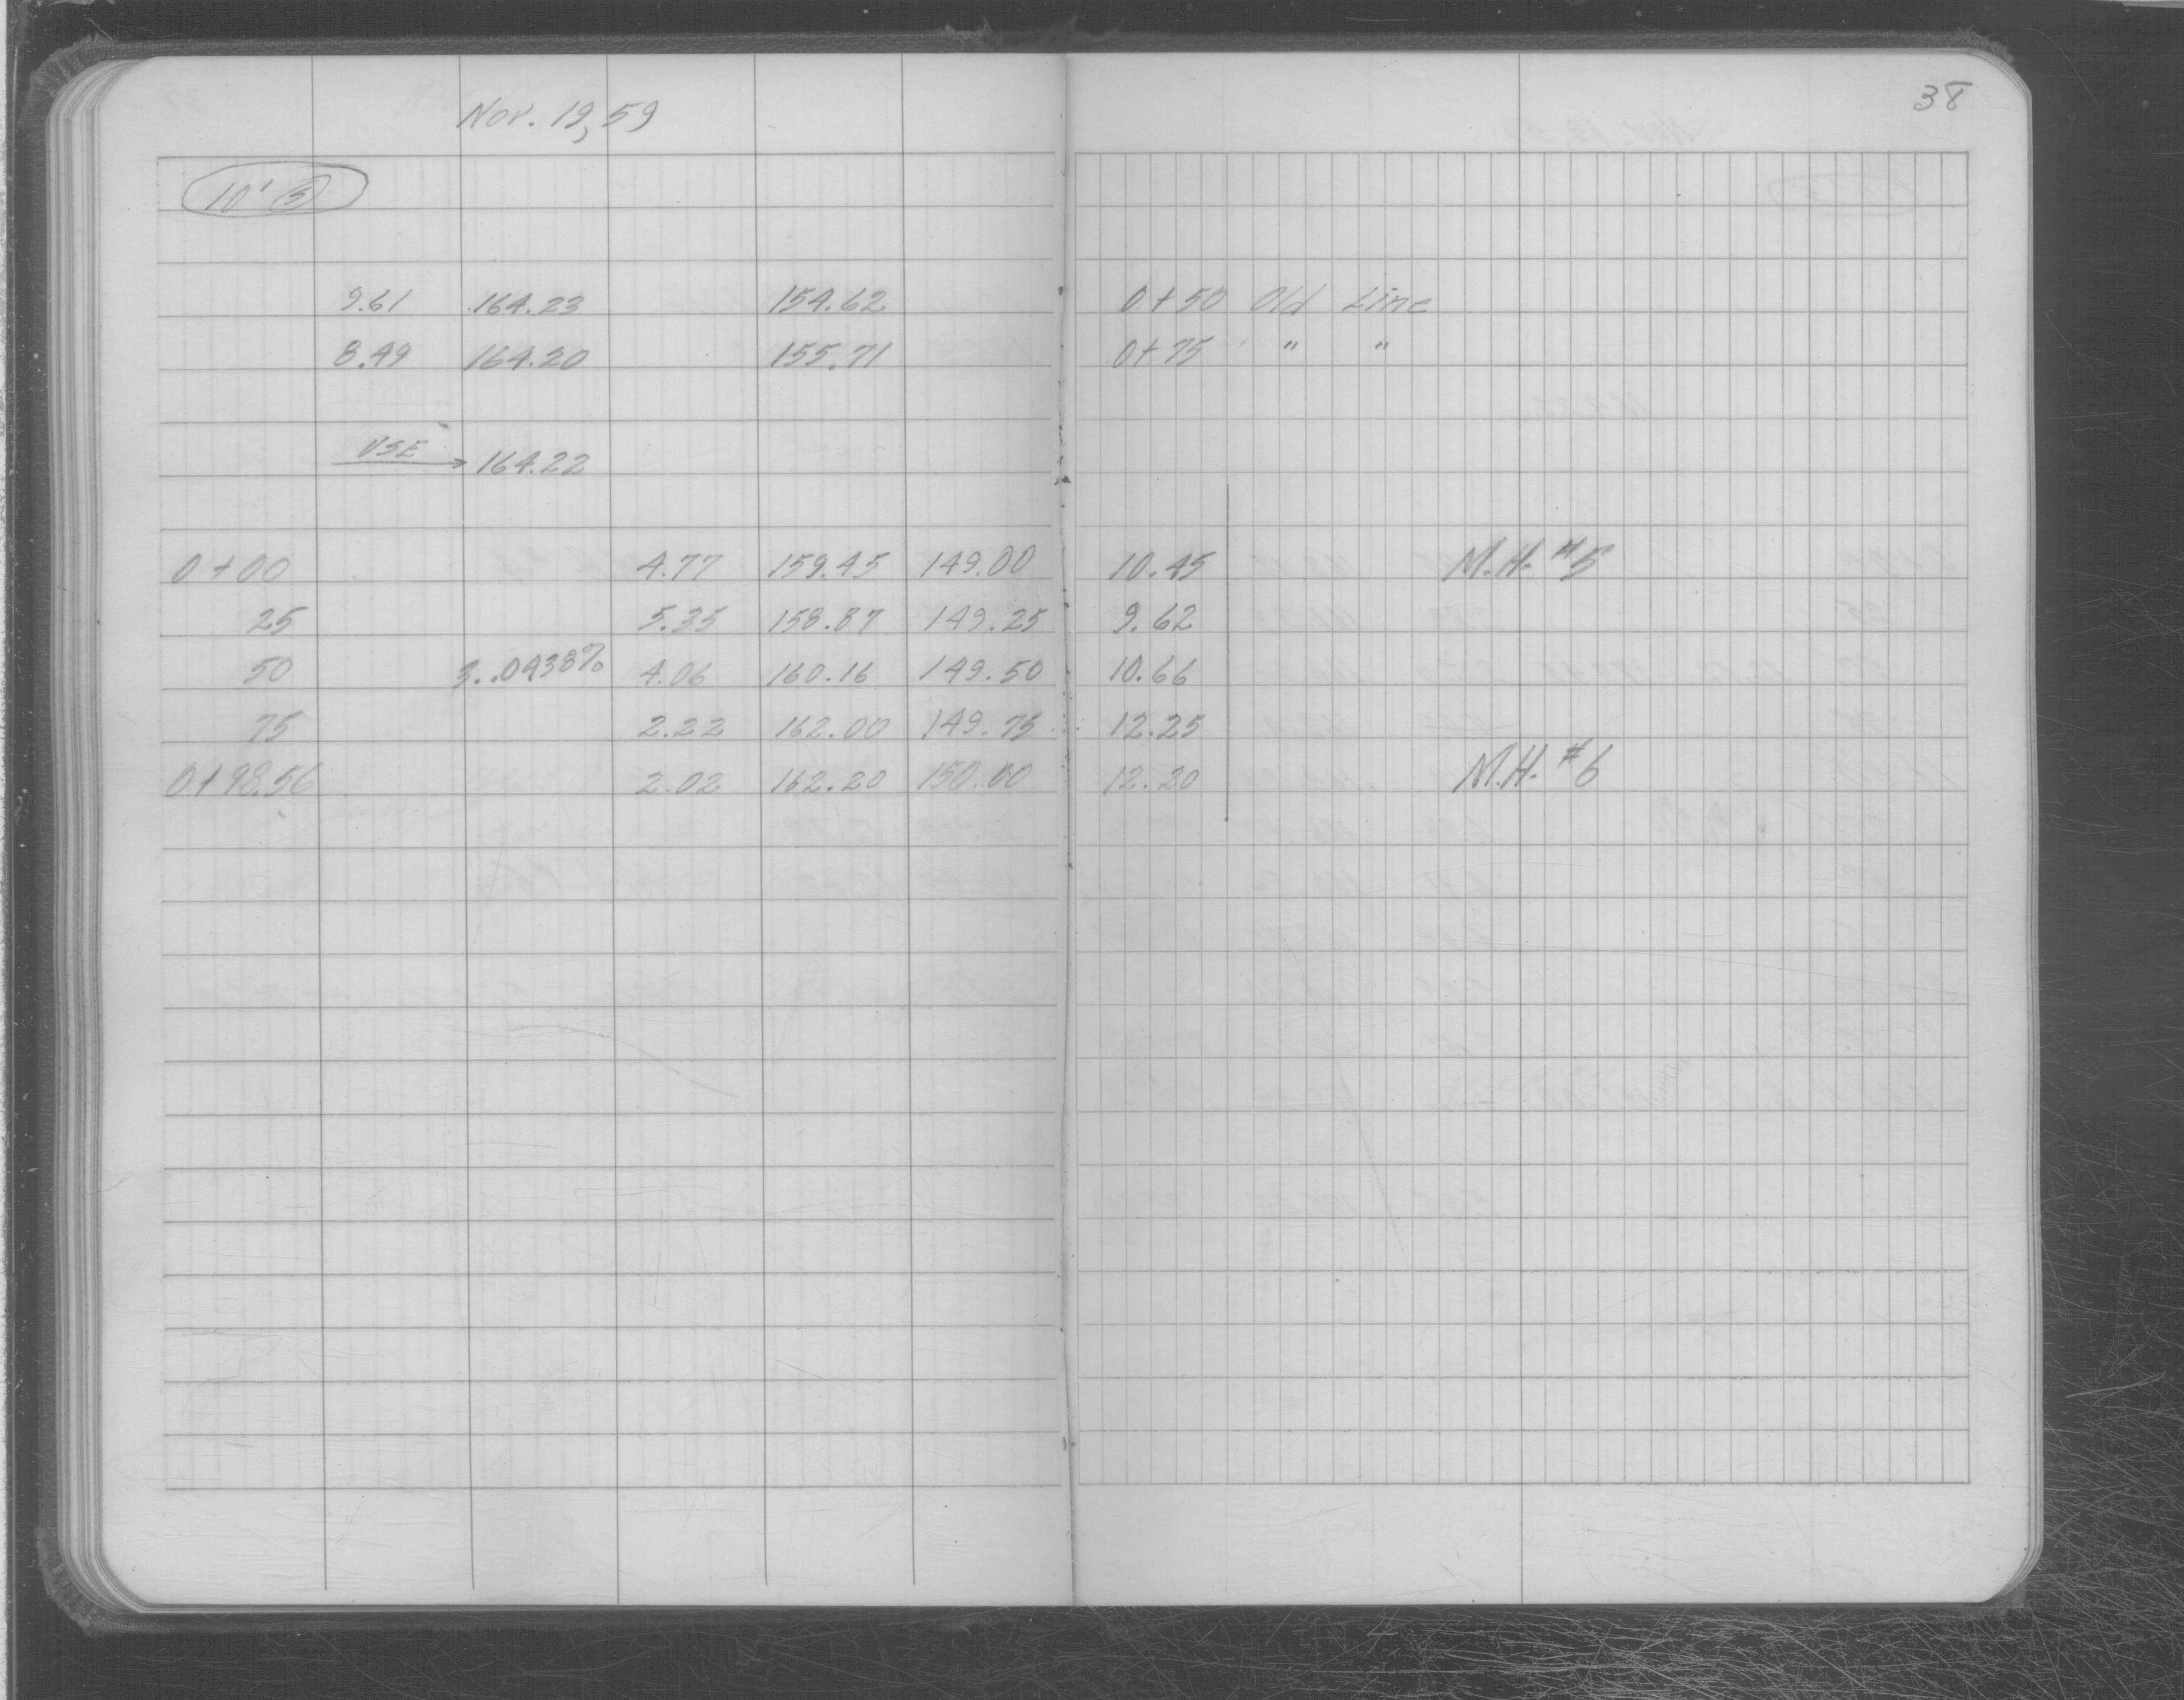 38
Nov. 19, 59
10' (S)
9.61 164.23 154.62 0+50 Old Line
8.49 164.20 155.71 0+75 " "
USE → 164.22
0+00 4.77 159.45 149.00 10.45 M.H. #5
25 5.35 158.87 149.25 9.62
50 .0438% 4.06 160.16 149.50 10.66
75 2.22 162.00 149.75 12.25
0+98.56 2.02 162.20 150.00 12.20 M.H. #6